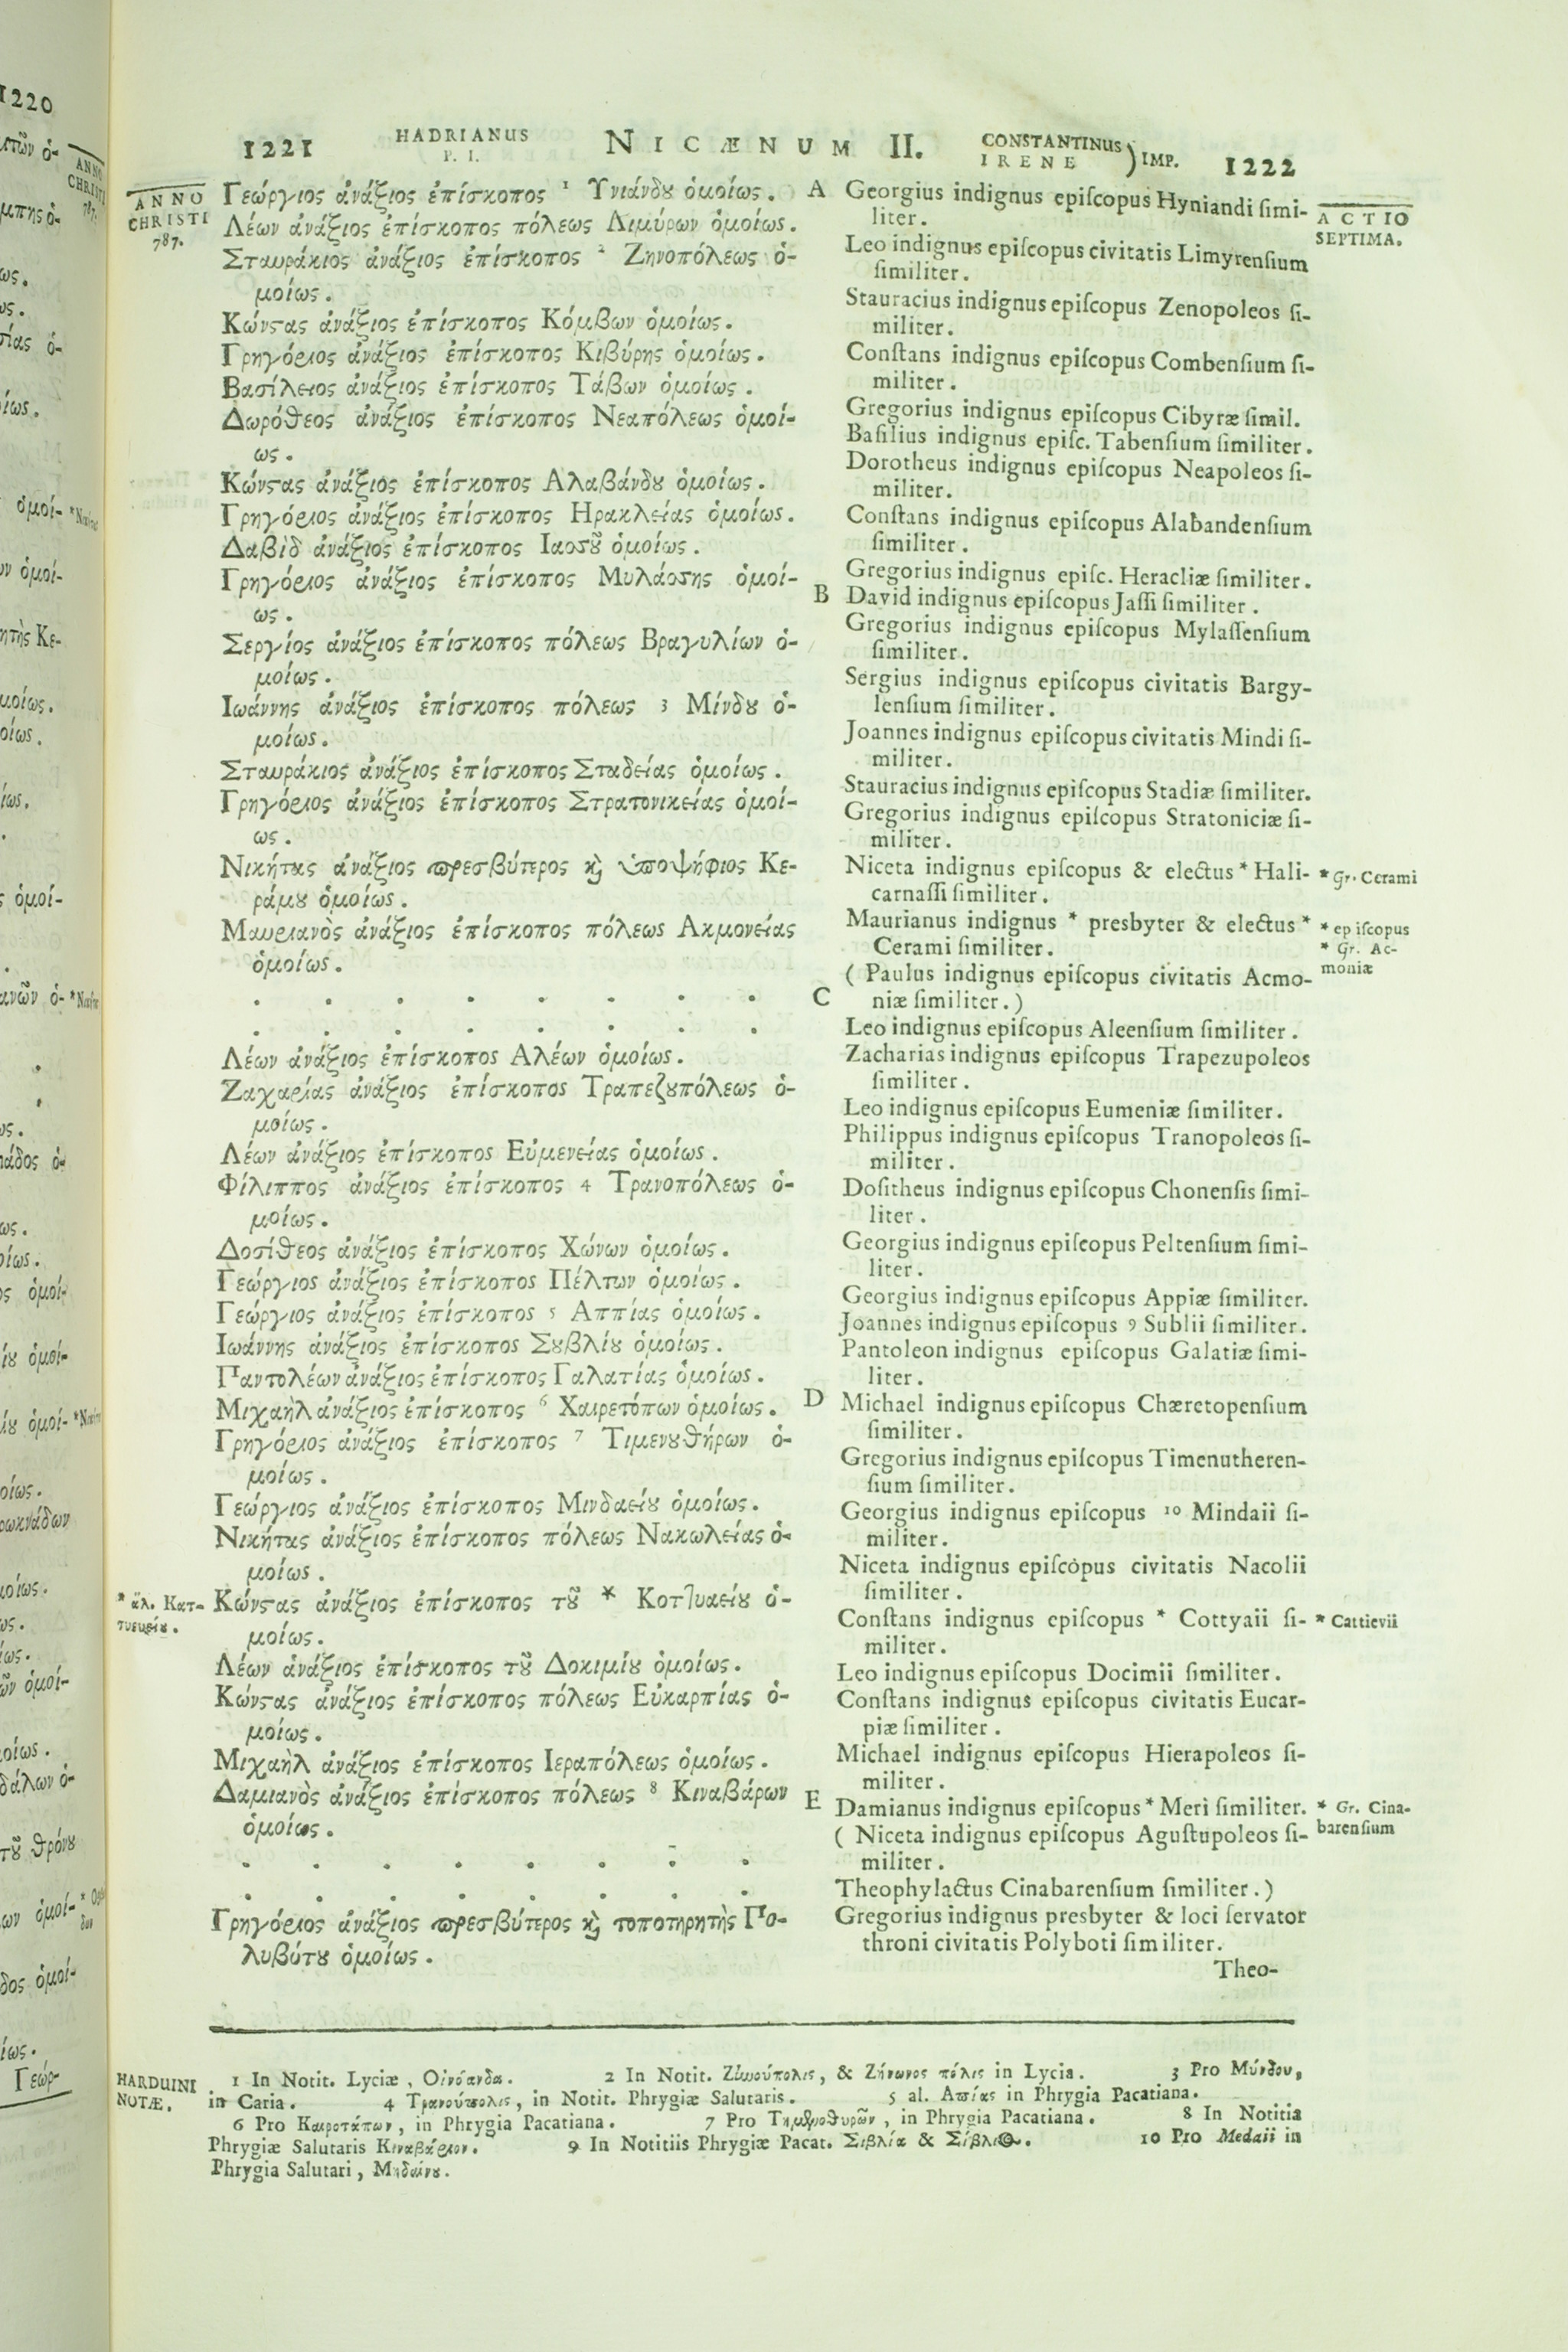 1221 HADRIANUS P. I. NICÆNUM II. CONSTANTINUS IRENE } IMP. 1222
ANNO
CHRISTI
787.
Γεώργιος ἀνάξιος ἐπίσκοπος ¹ Υνιάνδου ὁμοίως.
Λέων ἀνάξιος ἐπίσκοπος πόλεως Λιμύρων ὁμοίως.
Σταυράκιος ἀνάξιος ἐπίσκοπος ² Ζηνοπόλεως ὁ-
μοίως.
Κώνστας ἀνάξιος ἐπίσκοπος Κόμβων ὁμοίως.
Γρηγόριος ἀνάξιος ἐπίσκοπος Κιβύρης ὁμοίως.
Βασίλειος ἀνάξιος ἐπίσκοπος Τάβων ὁμοίως.
Δωρόθεος ἀνάξιος ἐπίσκοπος Νεαπόλεως ὁμοί-
ως.
Κώνστας ἀνάξιος ἐπίσκοπος Αλαβάνδου ὁμοίως.
Γρηγόριος ἀνάξιος ἐπίσκοπος Ηρακλείας ὁμοίως.
Δαβὶδ ἀνάξιος ἐπίσκοπος Ιασσοῦ ὁμοίως.
Γρηγόριος ἀνάξιος ἐπίσκοπος Μυλάσσης ὁμοί-
ως.
Σεργίος ἀνάξιος ἐπίσκοπος πόλεως Βραγυλίων ὁ-
μοίως.
Ιωάννης ἀνάξιος ἐπίσκοπος πόλεως 3 Μίνδου ὁ-
μοίως.
Σταυράκιος ἀνάξιος ἐπίσκοπος Σταδείας ὁμοίως.
Γρηγόριος ἀνάξιος ἐπίσκοπος Στρατονικείας ὁμοί-
ως.
Νικήτας ἀνάξιος πρεσβύτερος καὶ ὑποψήφιος Κε-
ράμου ὁμοίως.
Μαυριανὸς ἀνάξιος ἐπίσκοπος πόλεως Ακμονείας
ὁμοίως.
. . . . . . . .
. . . . . . . .
Λέων ἀνάξιος ἐπίσκοπος Αλέων ὁμοίως.
Ζαχαρίας ἀνάξιος ἐπίσκοπος Τραπεζουπόλεως ὁ-
μοίως.
Λέων ἀνάξιος ἐπίσκοπος Εὐμενείας ὁμοίως.
Φίλιππος ἀνάξιος ἐπίσκοπος 4 Τρανοπόλεως ὁ-
μοίως.
Δοσίθεος ἀνάξιος ἐπίσκοπος Χώνων ὁμοίως.
Γεώργιος ἀνάξιος ἐπίσκοπος Πέλτων ὁμοίως.
Γεώργιος ἀνάξιος ἐπίσκοπος 5 Αππίας ὁμοίως.
Ιωάννης ἀνάξιος ἐπίσκοπος Σουβλίου ὁμοίως.
Παντολέων ἀνάξιος ἐπίσκοπος Γαλατίας ὁμοίως.
Μιχαὴλ ἀνάξιος ἐπίσκοπος ⁶ Χαιρετόπων ὁμοίως.
Γρηγόριος ἀνάξιος ἐπίσκοπος ⁷ Τιμενουθήρων ὁ-
μοίως.
Γεώργιος ἀνάξιος ἐπίσκοπος Μινδαείου ὁμοίως.
Νικήτας ἀνάξιος ἐπίσκοπος πόλεως Νακωλείας ὁ-
μοίως.
* ἄλ. Κατ-
τυειείου.
Κώνστας ἀνάξιος ἐπίσκοπος τοῦ * Κοττυαείου ὁ-
μοίως.
Λέων ἀνάξιος ἐπίσκοπος τοῦ Δοκιμίου ὁμοίως.
Κώνστας ἀνάξιος ἐπίσκοπος πόλεως Εὐκαρπίας ὁ-
μοίως.
Μιχαὴλ ἀνάξιος ἐπίσκοπος Ιεραπόλεως ὁμοίως.
Δαμιανὸς ἀνάξιος ἐπίσκοπος πόλεως ⁸ Κιναβάρων
ὁμοίως.
. . . . . . . .
. . . . . . . .
Γρηγόριος ἀνάξιος πρεσβύτερος καὶ τοποτηρητὴς Πο-
λυβότου ὁμοίως.
A
B
C
D
E
Georgius indignus episcopus Hyniandi simi-
liter.
Leo indignus episcopus civitatis Limyrensium
similiter.
Stauracius indignus episcopus Zenopoleos si-
militer.
Constans indignus episcopus Combensium si-
militer.
Gregorius indignus episcopus Cibyræ simil.
Basilius indignus episc. Tabensium similiter.
Dorotheus indignus episcopus Neapoleos si-
militer.
Constans indignus episcopus Alabandensium
similiter.
Gregorius indignus episc. Heracliæ similiter.
David indignus episcopus Jassi similiter.
Gregorius indignus episcopus Mylassensium
similiter.
Sergius indignus episcopus civitatis Bargy-
lensium similiter.
Joannes indignus episcopus civitatis Mindi si-
militer.
Stauracius indignus episcopus Stadiæ similiter.
Gregorius indignus episcopus Stratoniciæ si-
militer.
Niceta indignus episcopus & electus * Hali-
carnassi similiter.
Maurianus indignus * presbyter & electus *
Cerami similiter.
( Paulus indignus episcopus civitatis Acmo-
niæ similiter.)
Leo indignus episcopus Aleensium similiter.
Zacharias indignus episcopus Trapezupoleos
similiter.
Leo indignus episcopus Eumeniæ similiter.
Philippus indignus episcopus Tranopoleos si-
militer.
Dositheus indignus episcopus Chonensis simi-
liter.
Georgius indignus episcopus Peltensium simi-
liter.
Georgius indignus episcopus Appiæ similiter.
Joannes indignus episcopus 9 Sublii similiter.
Pantoleon indignus episcopus Galatiæ simi-
liter.
Michael indignus episcopus Chæretopensium
similiter.
Gregorius indignus episcopus Timenutheren-
sium similiter.
Georgius indignus episcopus ¹⁰ Mindaii si-
militer.
Niceta indignus episcopus civitatis Nacolii
similiter.
Constans indignus episcopus * Cottyaii si-
militer.
Leo indignus episcopus Docimii similiter.
Constans indignus episcopus civitatis Eucar-
piæ similiter.
Michael indignus episcopus Hierapoleos si-
militer.
Damianus indignus episcopus * Meri similiter.
( Niceta indignus episcopus Agustupoleos si-
militer.
Theophylactus Cinabarensium similiter.)
Gregorius indignus presbyter & loci servator
throni civitatis Polyboti similiter.
Theo-
ACTIO
SEPTIMA.
* Gr. Cerami
* episcopus
* Gr. Ac-
moniæ
* Cattievii
* Gr. Cina-
barensium
HARDUINI
NOTÆ.
1 In Notit. Lyciæ, Οἰνόανδα. 2 In Notit. Ζηνούπολις, & Ζήνωνος πόλις in Lycia. 3 Pro Μύνδου,
in Caria. 4 Τρανούπολις, in Notit. Phrygiæ Salutaris. 5 al. Απίας in Phrygia Pacatiana.
6 Pro Καιροτάπων, in Phrygia Pacatiana. 7 Pro Τημενοθυρῶν, in Phrygia Pacatiana. 8 In Notitia
Phrygiæ Salutaris Κιναβάριον. 9 In Notitiis Phrygiæ Pacat. Σιβλία & Σίβλιος. 10 Pro Medaii in
Phrygia Salutari, Μηδαίου.
1220